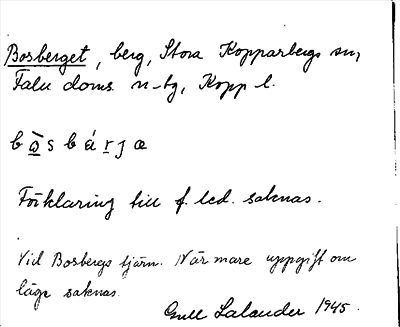 Bosberget, berg, Stora Kopparbergs sn,
Falu doms n-tg, Kopp l.
b ò s b á r j æ
Förklaring till f. led. saknas.
Vid Bosbergs tjärn. Närmare uppgift om
läge saknas.
Gull Lalander 1945.